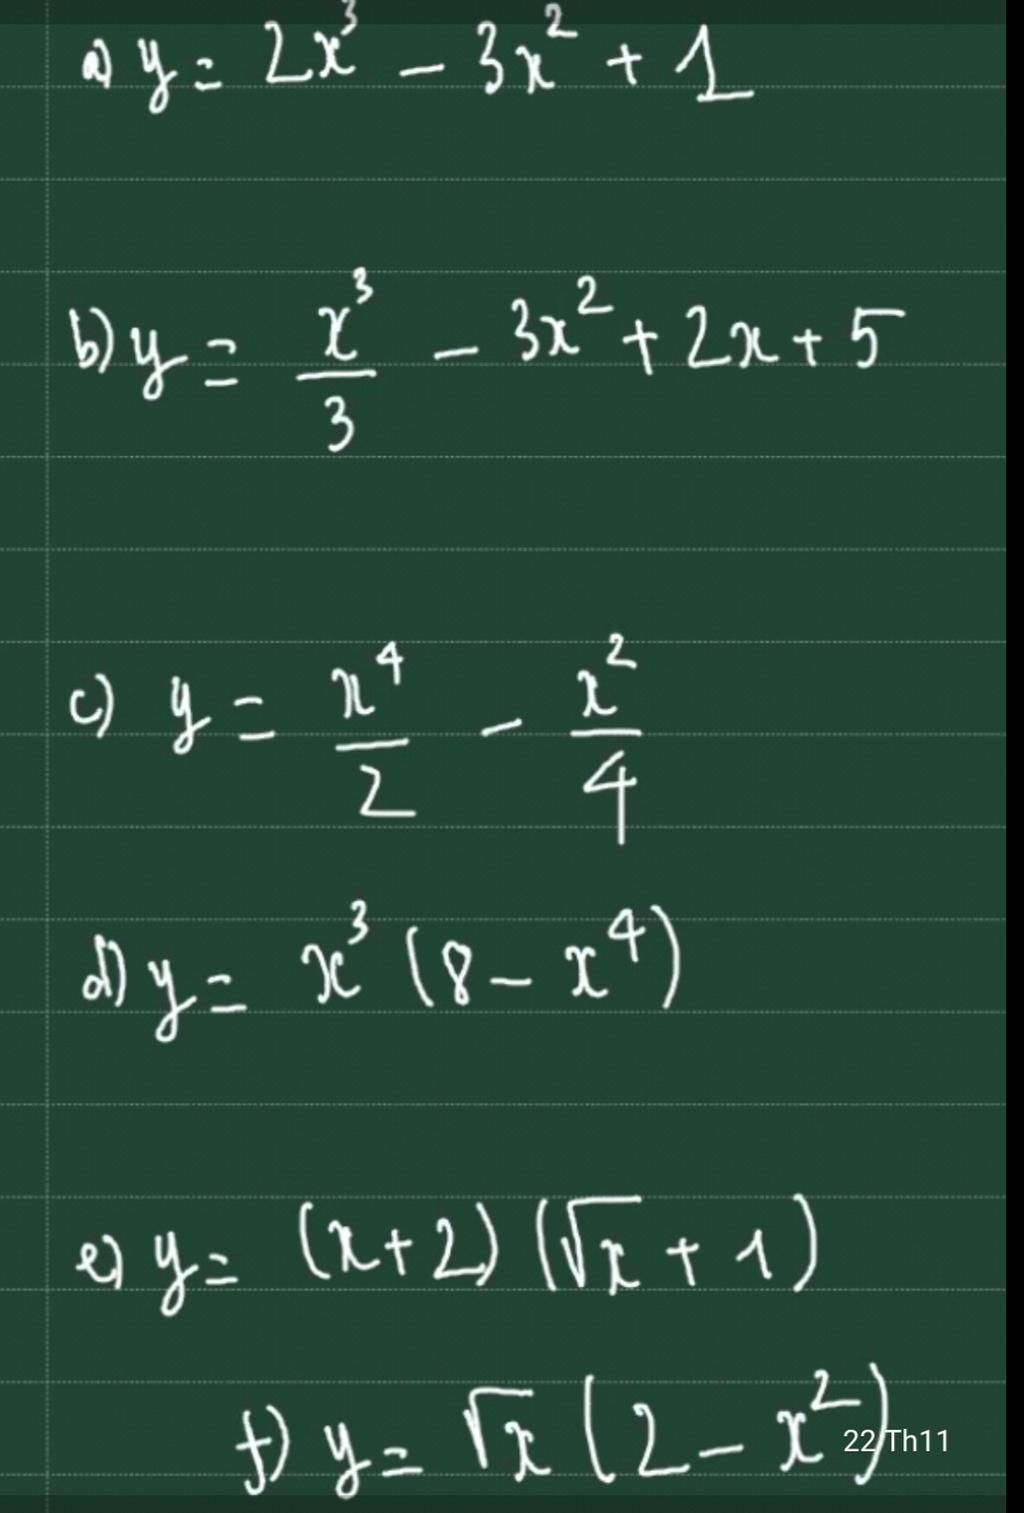 a) y = 2x³ - 3x² + 1
b) y = x³/3 - 3x² + 2x + 5
c) y = x⁴/2 - x²/4
d) y = x³ (8 - x⁴)
e) y = (x + 2) (√x + 1)
f) y = √x (2 - x²)
22 Th11